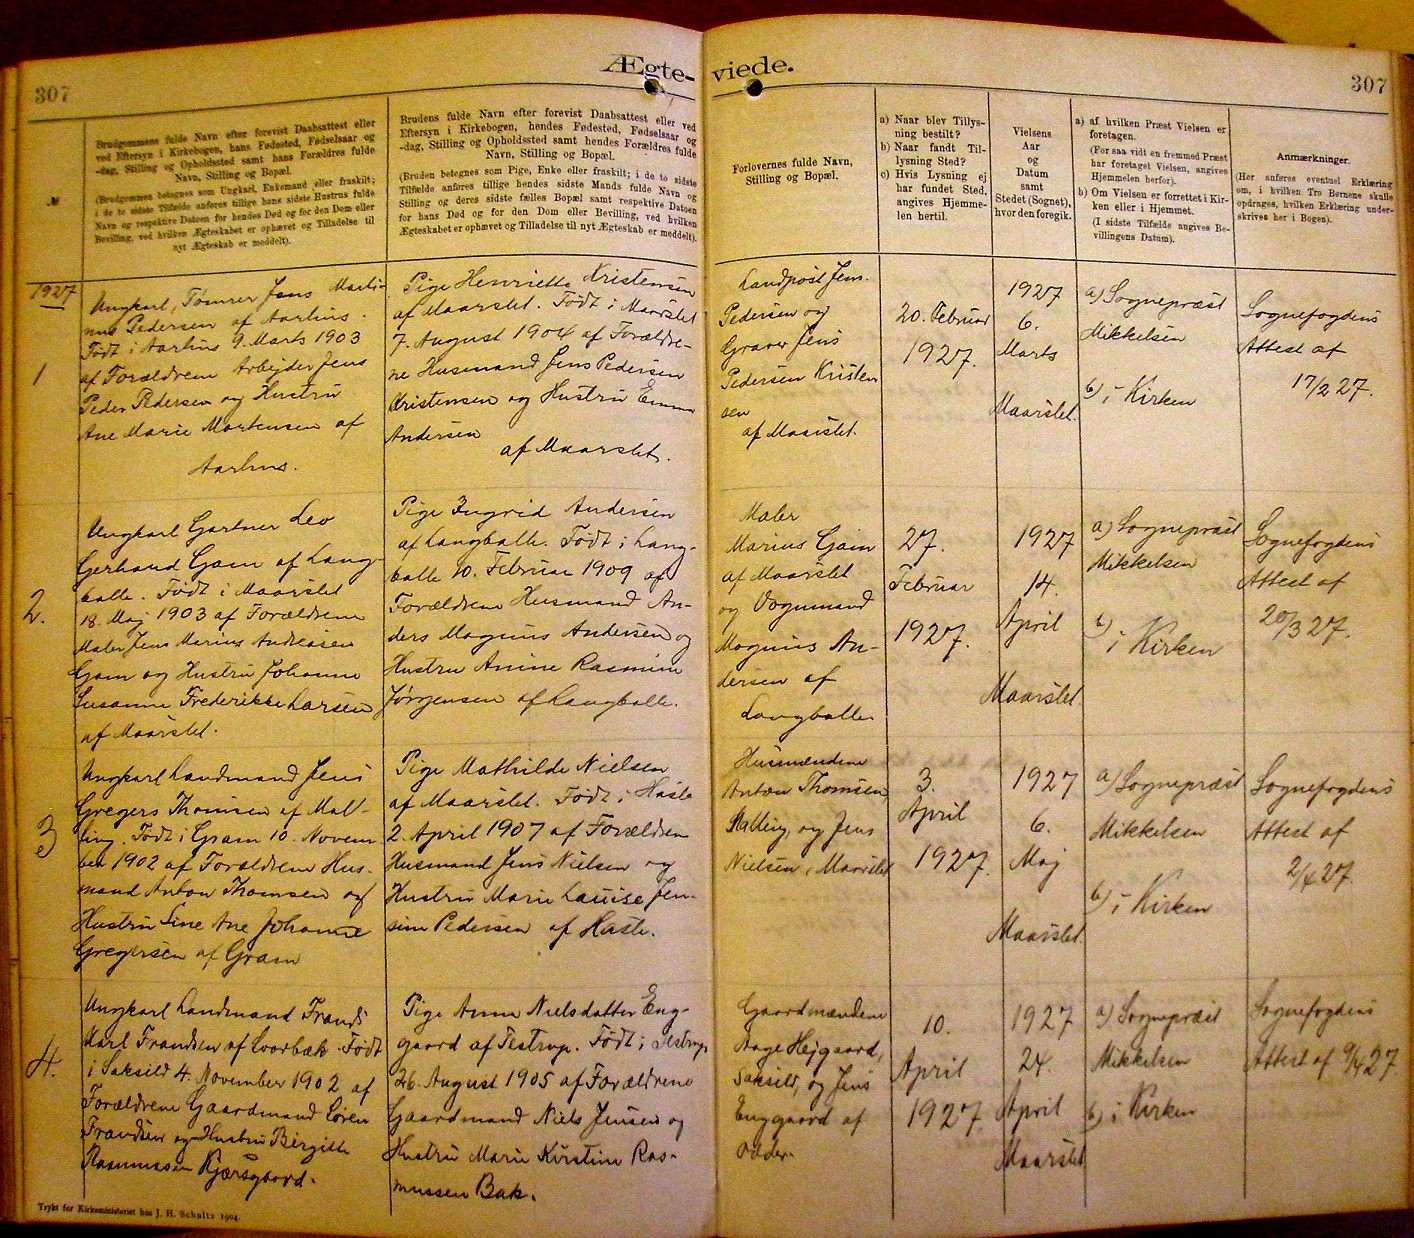 Ægte-
viede.
307
307
№
Brudgommens fulde Navn efter forevist Daabsattest eller
ved Eftersyn i Kirkebogen, hans Fødested, Fødselsaar og
-dag, Stilling og Opholdssted samt hans Forældres fulde
Navn, Stilling og Bopæl.
(Brudgommen betegnes som Ungkarl, Enkemand eller fraskilt;
i de to sidste Tilfælde anføres tillige hans sidste Hustrus fulde
Navn og respektive Datoen for hendes Død og for den Dom eller
Bevilling, ved hvilken Ægteskabet er ophævet og Tilladelse til
nyt Ægteskab er meddelt).
Brudens fulde Navn efter forevist Daabsattest eller ved
Eftersyn i Kirkebogen, hendes Fødested, Fødselsaar og
-dag, Stilling og Opholdssted samt hendes Forældres fulde
Navn, Stilling og Bopæl.
(Bruden betegnes som Pige, Enke eller fraskilt; i de to sidste
Tilfælde anføres tillige hendes sidste Mands fulde Navn og
Stilling og deres sidste fælles Bopæl samt respektive Datoen
for hans Død og for den Dom eller Bevilling, ved hvilken
Ægteskabet er ophævet og Tilladelse til nyt Ægteskab er meddelt).
Forlovernes fulde Navn,
Stilling og Bopæl.
a) Naar blev Tillys-
ning bestilt?
b) Naar fandt Til-
lysning Sted?
c) Hvis Lysning ej
har fundet Sted,
angives Hjemme-
len hertil.
Vielsens
Aar
og
Datum
samt
Stedet (Sognet),
hvor den foregik.
a) af hvilken Præst Vielsen er
foretagen.
(For saa vidt en fremmed Præst
har foretaget Vielsen, angives
Hjemmelen herfor).
b) Om Vielsen er forrettet i Kir-
ken eller i Hjemmet.
(I sidste Tilfælde angives Be-
villingens Datum).
Anmærkninger.
(Her anføres eventuel Erklæring
om, i hvilken Tro Børnene skulle
opdrages, hvilken Erklæring under-
skrives her i Bogen).
1927
1
Ungkarl, Tømrer Jens Marti-
nus Pedersen af Aarhus.
Født i Aarhus 9. Marts 1903
af Forældrene Arbejder Jens
Peder Pedersen og Hustru
Ane Marie Mortensen af
Aarhus.
Pige Henriette Kristensen
af Maarslet. Født i Maarslet
7. August 1904 af Forældre-
ne Husmand Jens Pedersen
Kristensen og Hustru Emma
Andersen
af Maarslet.
Landpost Jens
Pedersen og
Graver Jens
Pedersen Kristen
sen
af Maarslet.
20. Februar
1927.
1927
6.
Marts
Maarslet.
a) Sognepræst
Mikkelsen
b) i Kirken
Sognefogdens
Attest af
17/2 27.
2.
Ungkarl Gartner Leo
Gerhard Gam af Lang-
balle. Født i Maarslet
18. Maj 1903 af Forældrene
Maler Jens Marius Andreasen
Gam og Hustru Johanne
Susanne Frederikke Larsen
af Maarslet.
Pige Ingrid Andersen
af Langballe. Født i Lang-
balle 10. Februar 1909 af
Forældrene Husmand An-
ders Magnus Andersen og
Hustru Amine Rasmine
Jørgensen af Langballe.
Maler
Marius Gam
af Maarslet
og Vognmand
Magnus An-
dersen af
Langballe
27.
Februar
1927.
1927
14.
April
Maarslet.
a) Sognepræst
Mikkelsen
b) i Kirken
Sognefogdens
Attest af
20/3 27.
3
Ungkarl Landmand Jens
Gregers Thomsen af Mal-
ling. Født i Gram 10. Novem
ber 1902 af Forældrene Hus-
mand Anton Thomsen og
Hustru Line Ane Johanne
Gregersen af Gram
Pige Mathilde Nielsen
af Maarslet. Født i Hasle
2. April 1907 af Forældrene
Husmand Jens Nielsen og
Hustru Marie Lauise Jen-
sine Pedersen af Hasle.
Husmændene
Anton Thomsen,
Malling, og Jens
Nielsen, Maarslet
3.
April
1927.
1927
6.
Maj
Maarslet.
a) Sognepræst
Mikkelsen
b) i Kirken
Sognefogdens
Attest af
2/4 27.
4.
Ungkarl Landmand Frands
Karl Frandsen af Svorbæk. Født
i Saksild 4. November 1902 af
Forældrene Gaardmand Søren
Frandsen og Hustru Birgitte
Rasmussen Kjærsgaard.
Pige Anna Nielsdatter Eng-
gaard af Testrup. Født i Testrup
26. August 1905 af Forældrene
Gaardmand Niels Jensen og
Hustru Marie Kirstine Ras-
mussen Bak.
Gaardmændene
Aage Hejgaard,
Saksild, og Jens
Enggaard af
Odder.
10.
April
1927.
1927
24.
April
Maarslet
a) Sognepræst
Mikkelsen
b) i Kirken
Sognefogdens
Attest af 9/4 27.
Trykt for Kirkeministeriet hos J. H. Schultz 1904.